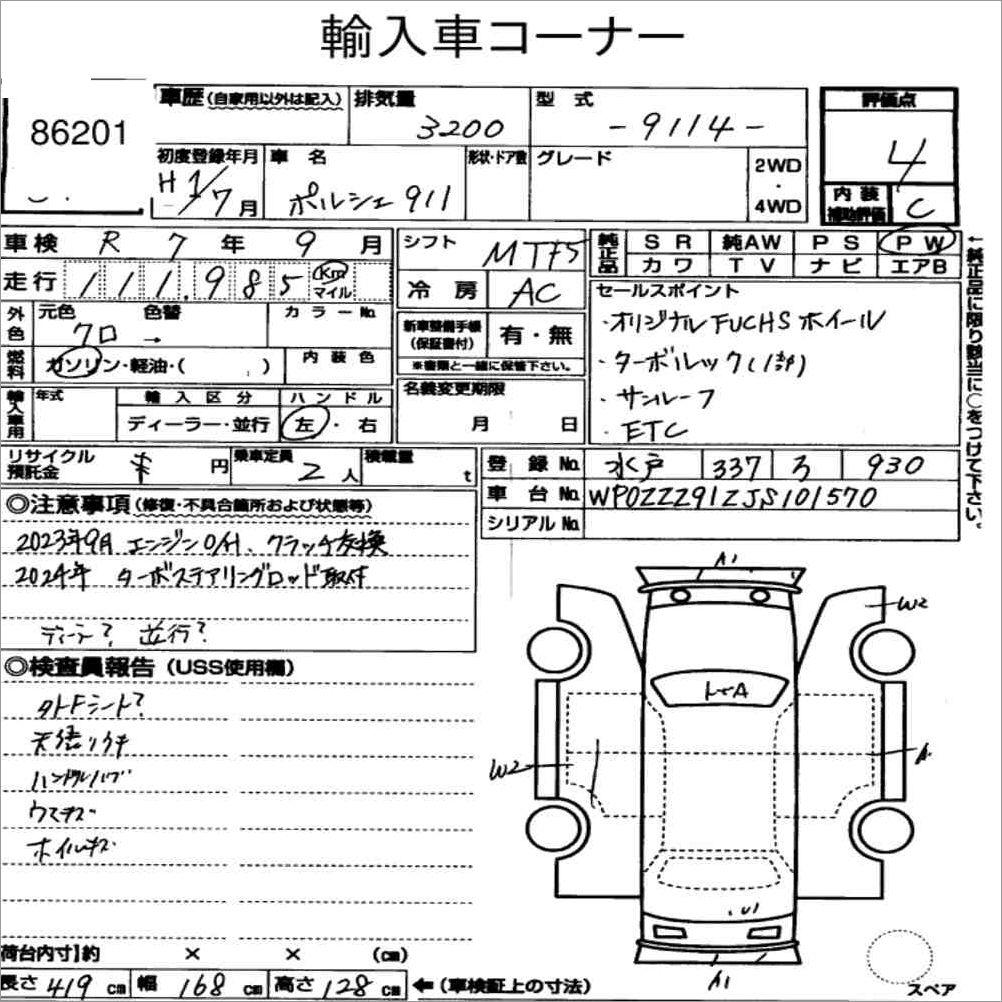 輸入車コーナー
86201
車歴(自家用以外は記入) 排気量 3200 型式 -9114- 評価点 4
初度登録年月 H 1/7月 車名 ポルシェ911 形状・ドア数 グレード 2WD・4WD 内装補助評価 C
車検 R 7年 9月 シフト MTF5 純正品 SR 純AW PS PW
走行 111,985 Km マイル 冷房 AC カワ TV ナビ エアB
←純正品に限り該当に○をつけて下さい。
外色 元色 クロ → 色替 カラーNo. 新車整備手帳(保証書付) 有・無
※書類と一緒に保管下さい。
燃料 ガソリン・軽油・( ) 内装色
セールスポイント
・オリジナルFUCHSホイール
・ターボルック(1部)
・サンルーフ
・ETC
輸入車用 年式 輸入区分 ディーラー・並行 ハンドル 左・右 名義変更期限 月 日
リサイクル預託金 ¥ 円 乗車定員 2人 積載量 t
登録No. 水戸 337 ろ 930
車台No. WP0ZZZ91ZJS101570
シリアルNo.
◎注意事項(修復・不具合箇所および状態等)
2023年9月 エンジンO/H、クラッチ交換
2024年 ターボステアリングロッド取付
ディーラー? 並行?
◎検査員報告(USS使用欄)
シート?
天張り
ハンドル
ウスキズ
ホイルキズ
A1
W2
A
W2
A
U1
A1
スペア
荷台内寸 約 × × (cm)
長さ 419 cm 幅 168 cm 高さ 128 cm ←(車検証上の寸法)